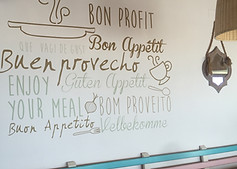 BON PROFIT
QUE VAGI DE GUST
Bon Appétit
Buen provecho
ENJOY
Guten Appetit
YOUR MEAL
BOM PROVEITO
Buon Appetito
Velbekomme